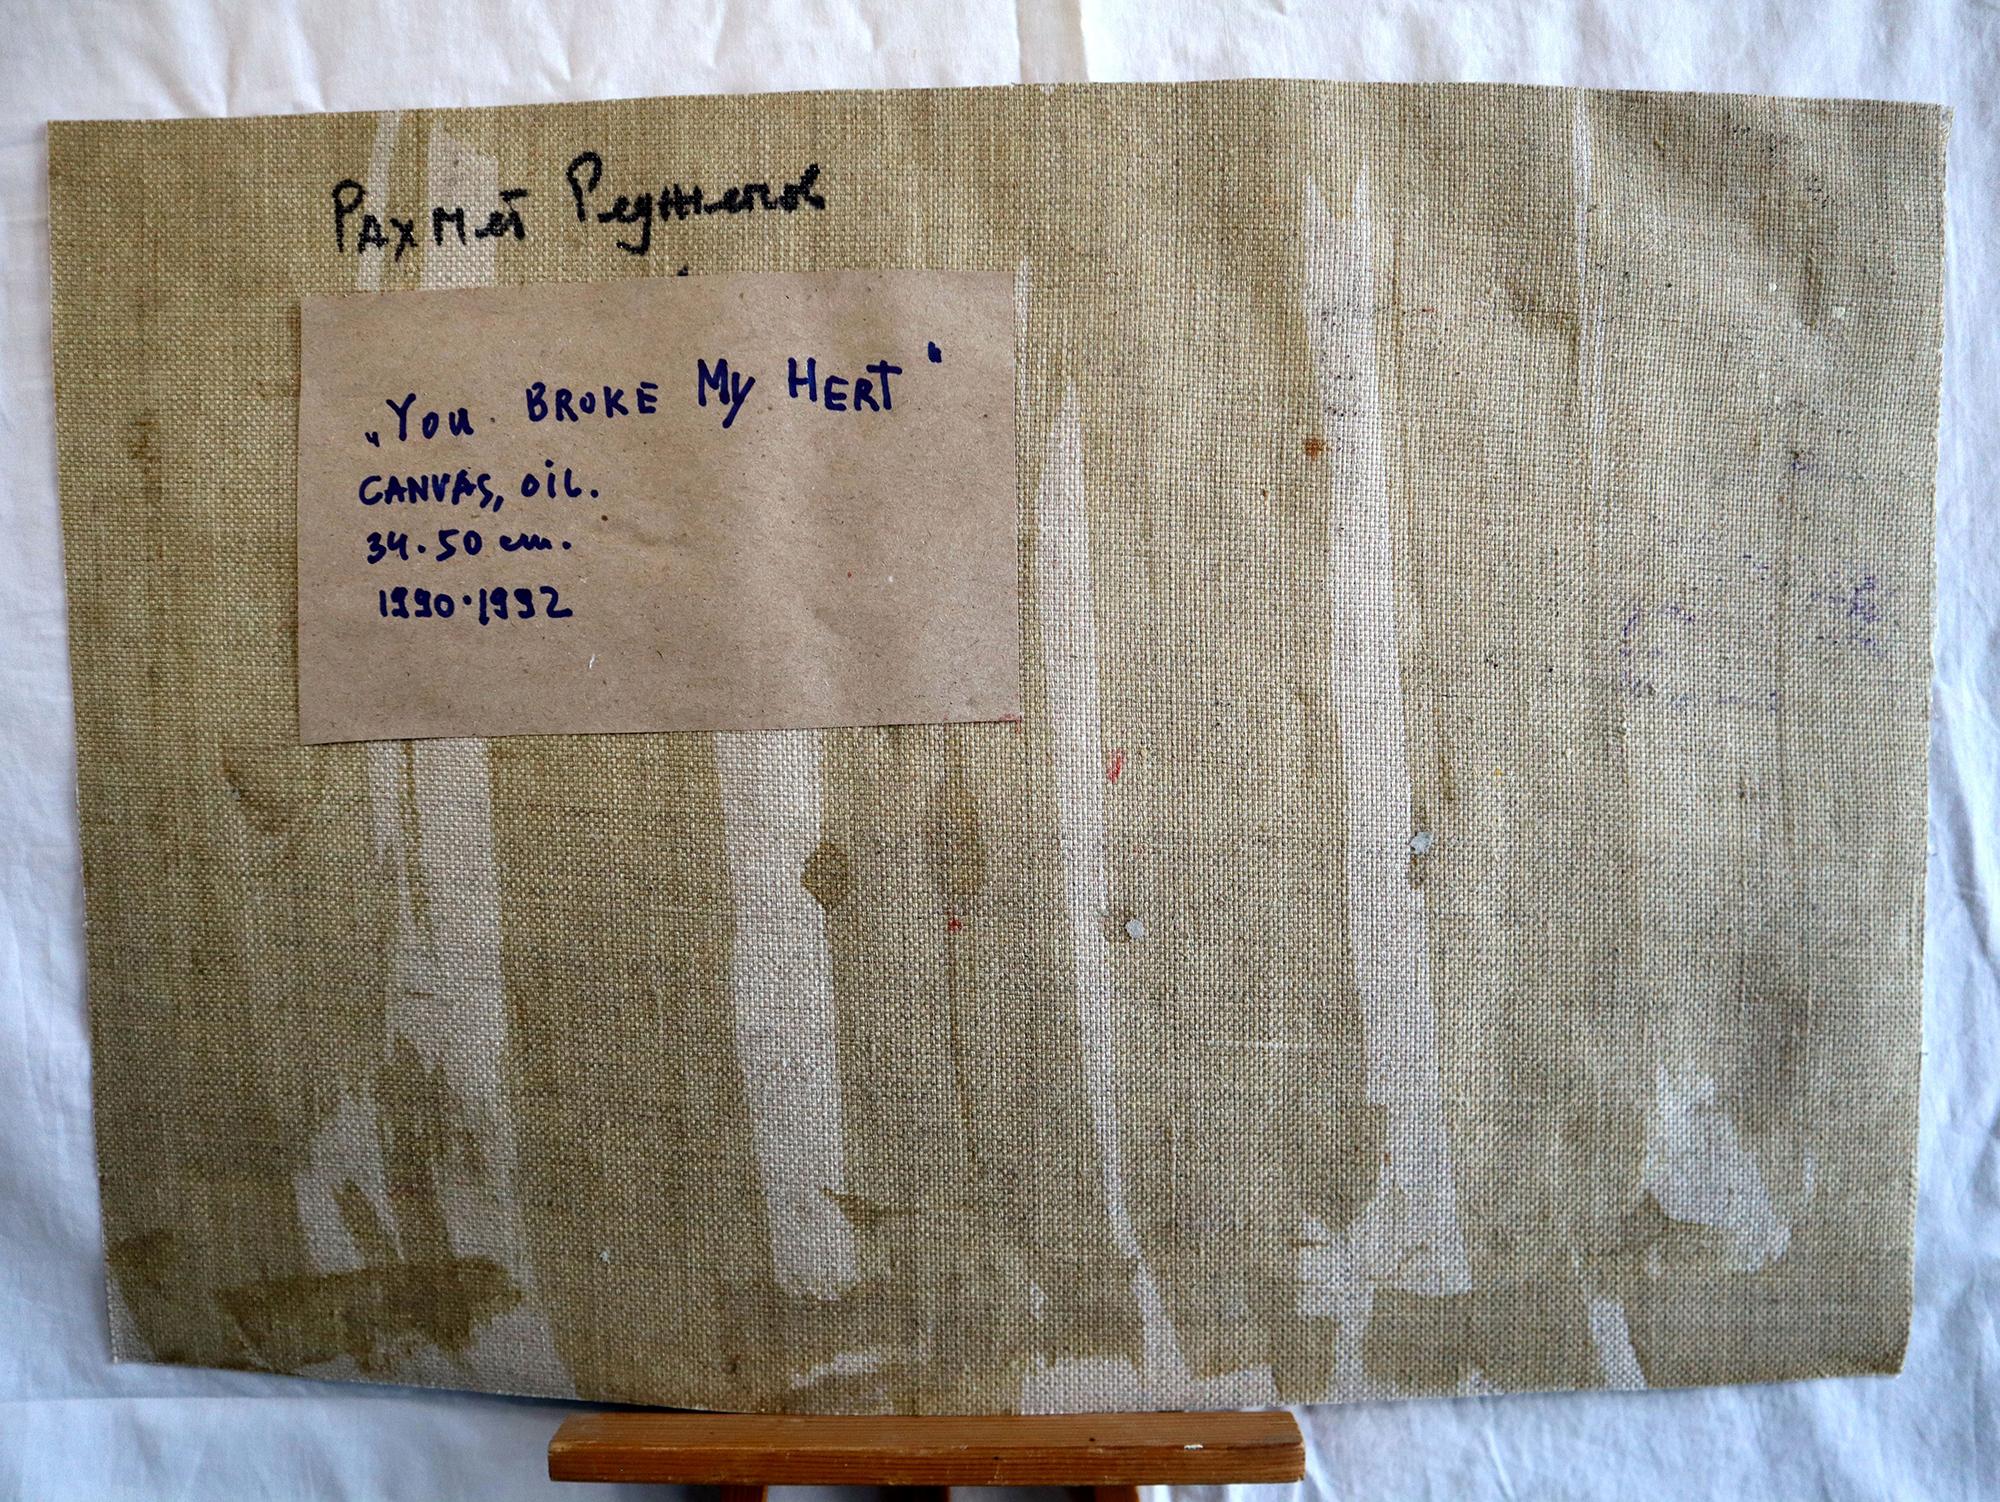 Рахмет Реджепов
„You BROKE My HERT"
CANVAS, OIL.
34.50 cm.
1990.1992